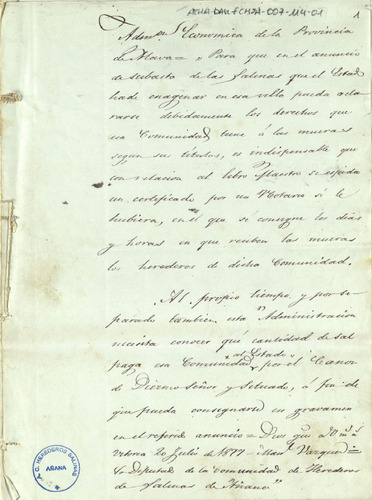 AHA-DAH-FCHZA-007-114-01
1
Admon Economica de la Provincia
de Alava = "Para que en el anuncio
de subasta de las Salinas que el Estado
ha de enagenar en esa villa pueda acla-
rarse debidamente los derechos que
esa Comunidad tiene á las mueras
segun sus títulos, es indispensable que
con relacion al libro Maestro se espida
un certificado por un Notario si le
hubiera, en el que se consigne los dias
y horas en que reciben las mueras
los herederos de dicha Comunidad.
Al propio tiempo y por se-
parado tambien esta Administracion
necesita conocer que cantidad de sal
paga esa Comunidad al Estado por el Canon
de Diezmo Señor y Situado, á fin de
que pueda consignarse en gravamen
en el referido anuncio = Dios gue á V m. a.
Vitoria 20 Julio de 1877 = Man. Vazquez =
Sr Diputado de la Comunidad de Herederos
de Salinas de Añana"
A. C. HEREDEROS SALINAS
AÑANA